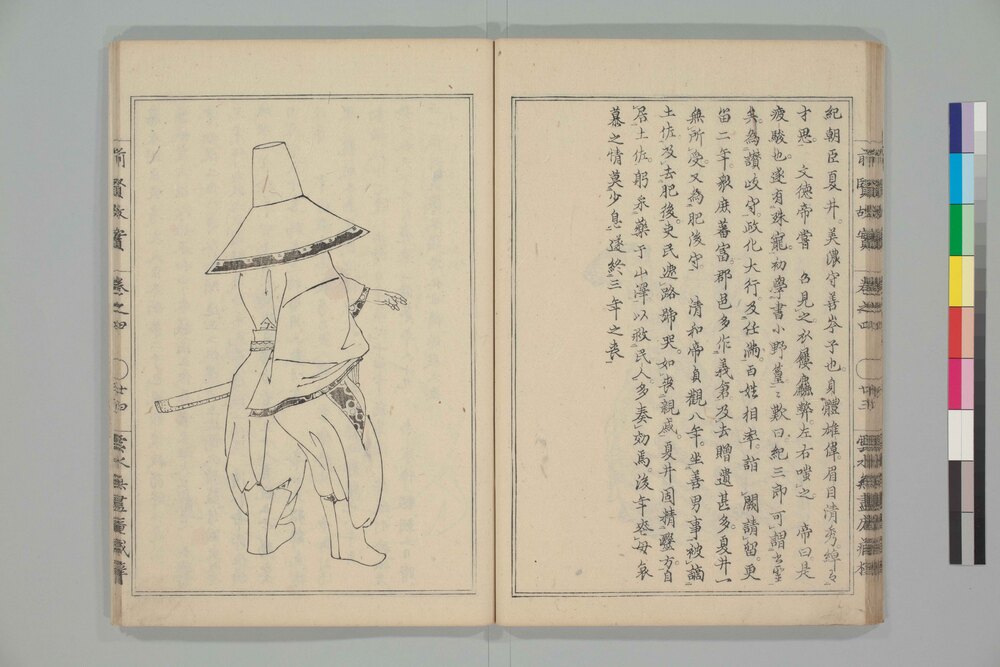 紀朝臣夏井。美濃守善岑子也。身體雄偉眉目清秀綽々
才思。文徳帝嘗 召見之。衣履麤弊左右嗤之 帝曰是
疲駿也。遂有殊寵。初學書小野篁々歎曰紀三郎可謂書聖
矣。為讃岐守。政化大行。及任満。百姓相率詣 闕請留。更
留二年。穀庶蕃富郡邑多作義倉及去贈遺甚多。夏井一
無所受又為肥後守 清和帝貞觀八年。坐善男事被謫
土佐及去肥後。吏民遮路號哭。如喪親戚。夏井固精毉方自
居土佐躬采藥于山澤以救民人多奏効焉。後年喪母哀
慕之情莫少息遂終三年之喪
前賢故實 卷之四 廿四